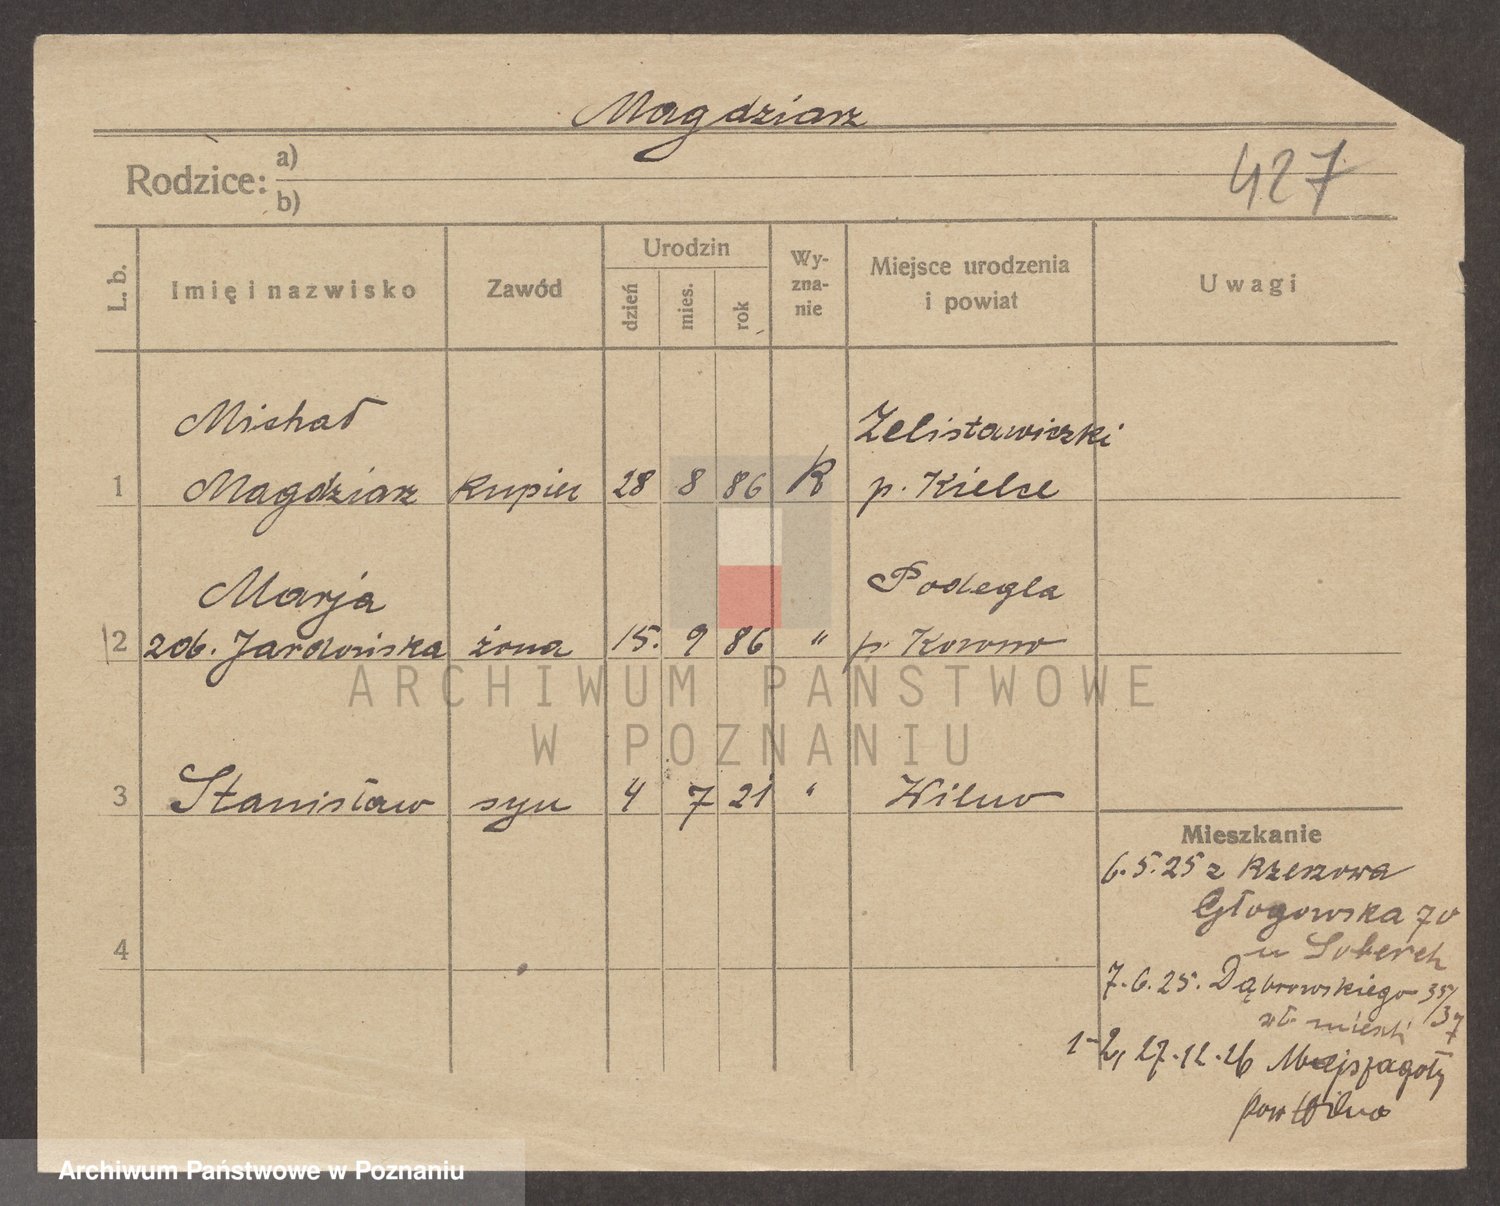 Magdziarz
Rodzice:
a)
b)
427
L. b.
Imię i nazwisko
Zawód
Urodzin
dzień
mies.
rok
Wy-
zna-
nie
Miejsce urodzenia
i powiat
Uwagi
Michał Zelistawiczki
1 Magdziarz kupiec 28 8 86 R p. Kielce
Marja Podegla
2 zd. Jardońska żona 15. 9 86 " p. Kowno
ARCHIWUM PAŃSTWOWE
W POZNANIU
3 Stanisław syn 4 7 21 " Wilno
Mieszkanie
6.5.25 z Rzeszowa
Głogowska 70
u Soberek
4
7.6.25. Dąbrowskiego 35/37
wł. mieszk
1-2, 27.12.26 Mejszagoły
pow Wilno
Archiwum Państwowe w Poznaniu